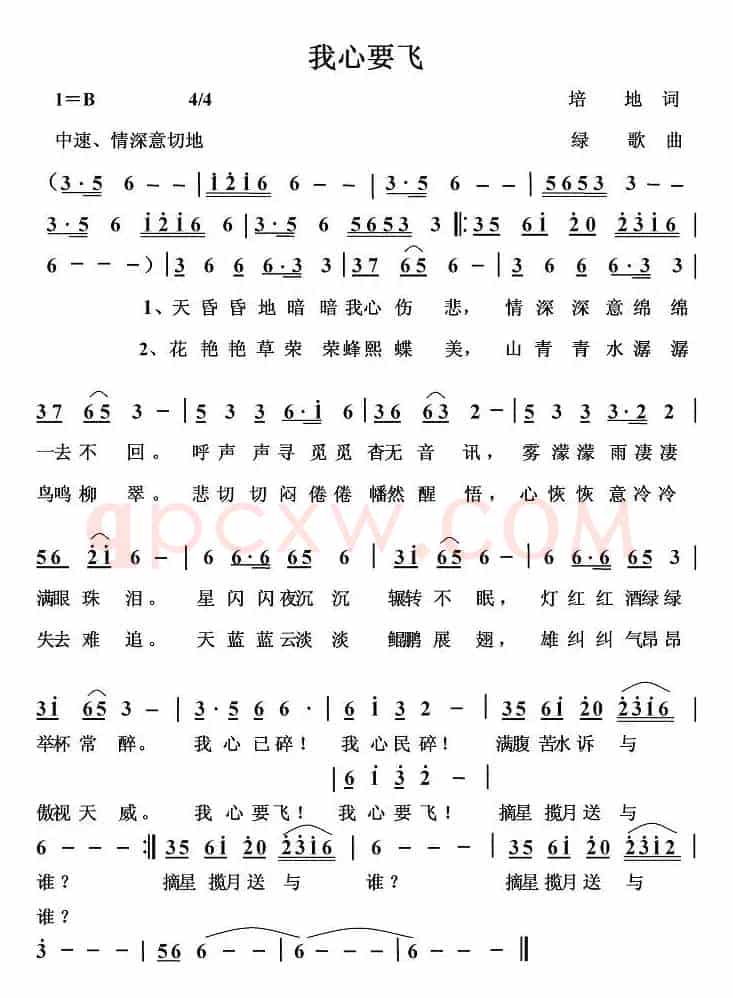 我心要飞
1=B 4/4 培 地 词
中速、情深意切地 绿 歌 曲
(3·5 6 - - | i2i6 - - | 3·5 6 - - | 5653 3 - - |
3·5 6 i2i6 | 3·5 6 5653 3 ‖: 35 6i 20 23i6 |
6 - - - ) | 3 6 6 6·3 3 | 37 65 6 - | 3 6 6 6·3 3 |
1、天 昏 昏 地 暗 暗 我心 伤 悲, 情 深 深 意 绵 绵
2、花 艳 艳 草 荣 荣 蜂熙 蝶 美, 山 青 青 水 潺 潺
37 65 3 - | 5 3 3 6·i | 36 63 2 - | 5 3 3 3·2 2 |
一去 不 回。 呼 声 声 寻 觅 觅 杳无 音 讯, 雾 濛 濛 雨 凄 凄
鸟鸣 柳 翠。 悲 切 切 闷 倦 倦 幡然 醒 悟, 心 恢 恢 意 冷 冷
qpcxw.COM
56 2i 6 - | 6 6·6 65 6 | 3i 65 6 - | 6 6·6 65 3 |
满眼 珠 泪。 星 闪 闪 夜沉 沉 辗转 不 眠, 灯 红 红 酒绿 绿
失去 难 追。 天 蓝 蓝 云淡 淡 鲲鹏 展 翅, 雄 纠 纠 气昂 昂
3i 65 3 - | 3·5 6 6· | 6 i 3 2 - | 35 6i 20 23i6 |
举杯 常 醉。 我 心 已 碎! 我 心 民 碎! 满腹 苦水 诉 与
| 6 i 3 2 - |
傲视 天 威。 我 心 要 飞! 我 心 要 飞! 摘星 揽月 送 与
6 - - - :‖ 35 6i 20 23i6 | 6 - - - | 35 6i 20 23i6 |
谁? 摘星 揽月 送 与 谁? 摘星 揽月 送 与
谁?
3 - - - | 56 6 - - | 6 - - - ‖